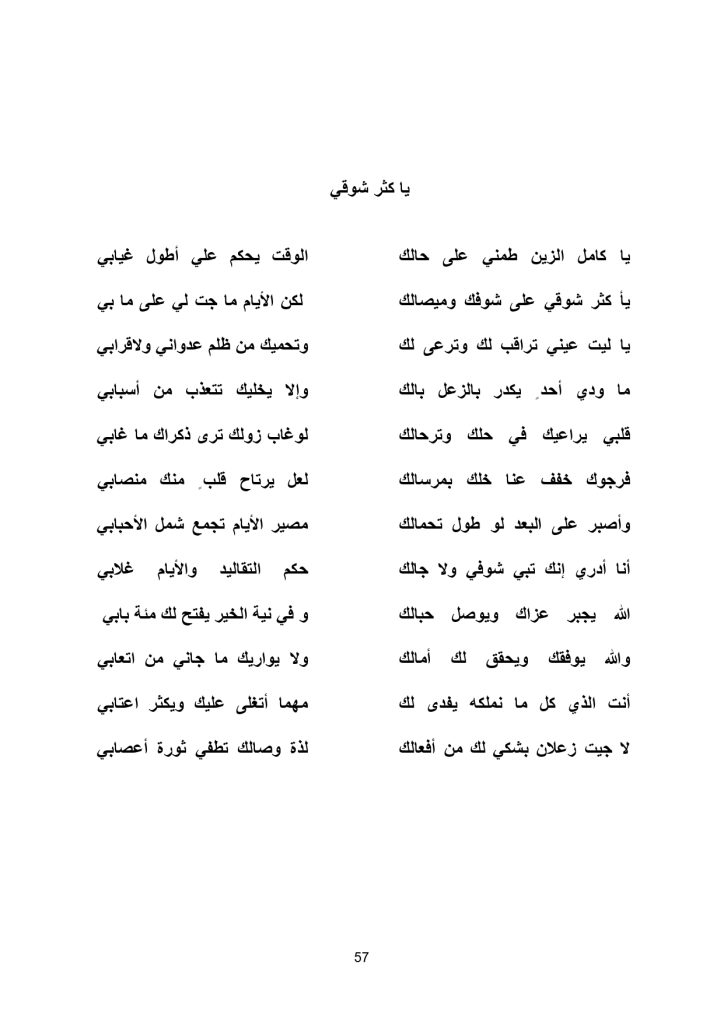 يا كثر شوقي
يا كامل الزين طمني على حالك الوقت يحكم علي أطول غيابي
يأ كثر شوقي على شوفك وميصالك لكن الأيام ما جت لي على ما بي
يا ليت عيني تراقب لك وترعى لك وتحميك من ظلم عدواني ولاقرابي
ما ودي أحدٍ يكدر بالزعل بالك وإلا يخليك تتعذب من أسبابي
قلبي يراعيك في حلك وترحالك لوغاب زولك ترى ذكراك ما غابي
فرجوك خفف عنا خلك بمرسالك لعل يرتاح قلبٍ منك منصابي
وأصبر على البعد لو طول تحمالك مصير الأيام تجمع شمل الأحبابي
أنا أدري إنك تبي شوفي ولا جالك حكم التقاليد والأيام غلابي
الله يجبر عزاك ويوصل حبالك و في نية الخير يفتح لك مئة بابي
والله يوفقك ويحقق لك أمالك ولا يواريك ما جاني من اتعابي
أنت الذي كل ما نملكه يفدى لك مهما أتغلى عليك ويكثر اعتابي
لا جيت زعلان بشكي لك من أفعالك لذة وصالك تطفي ثورة أعصابي
57